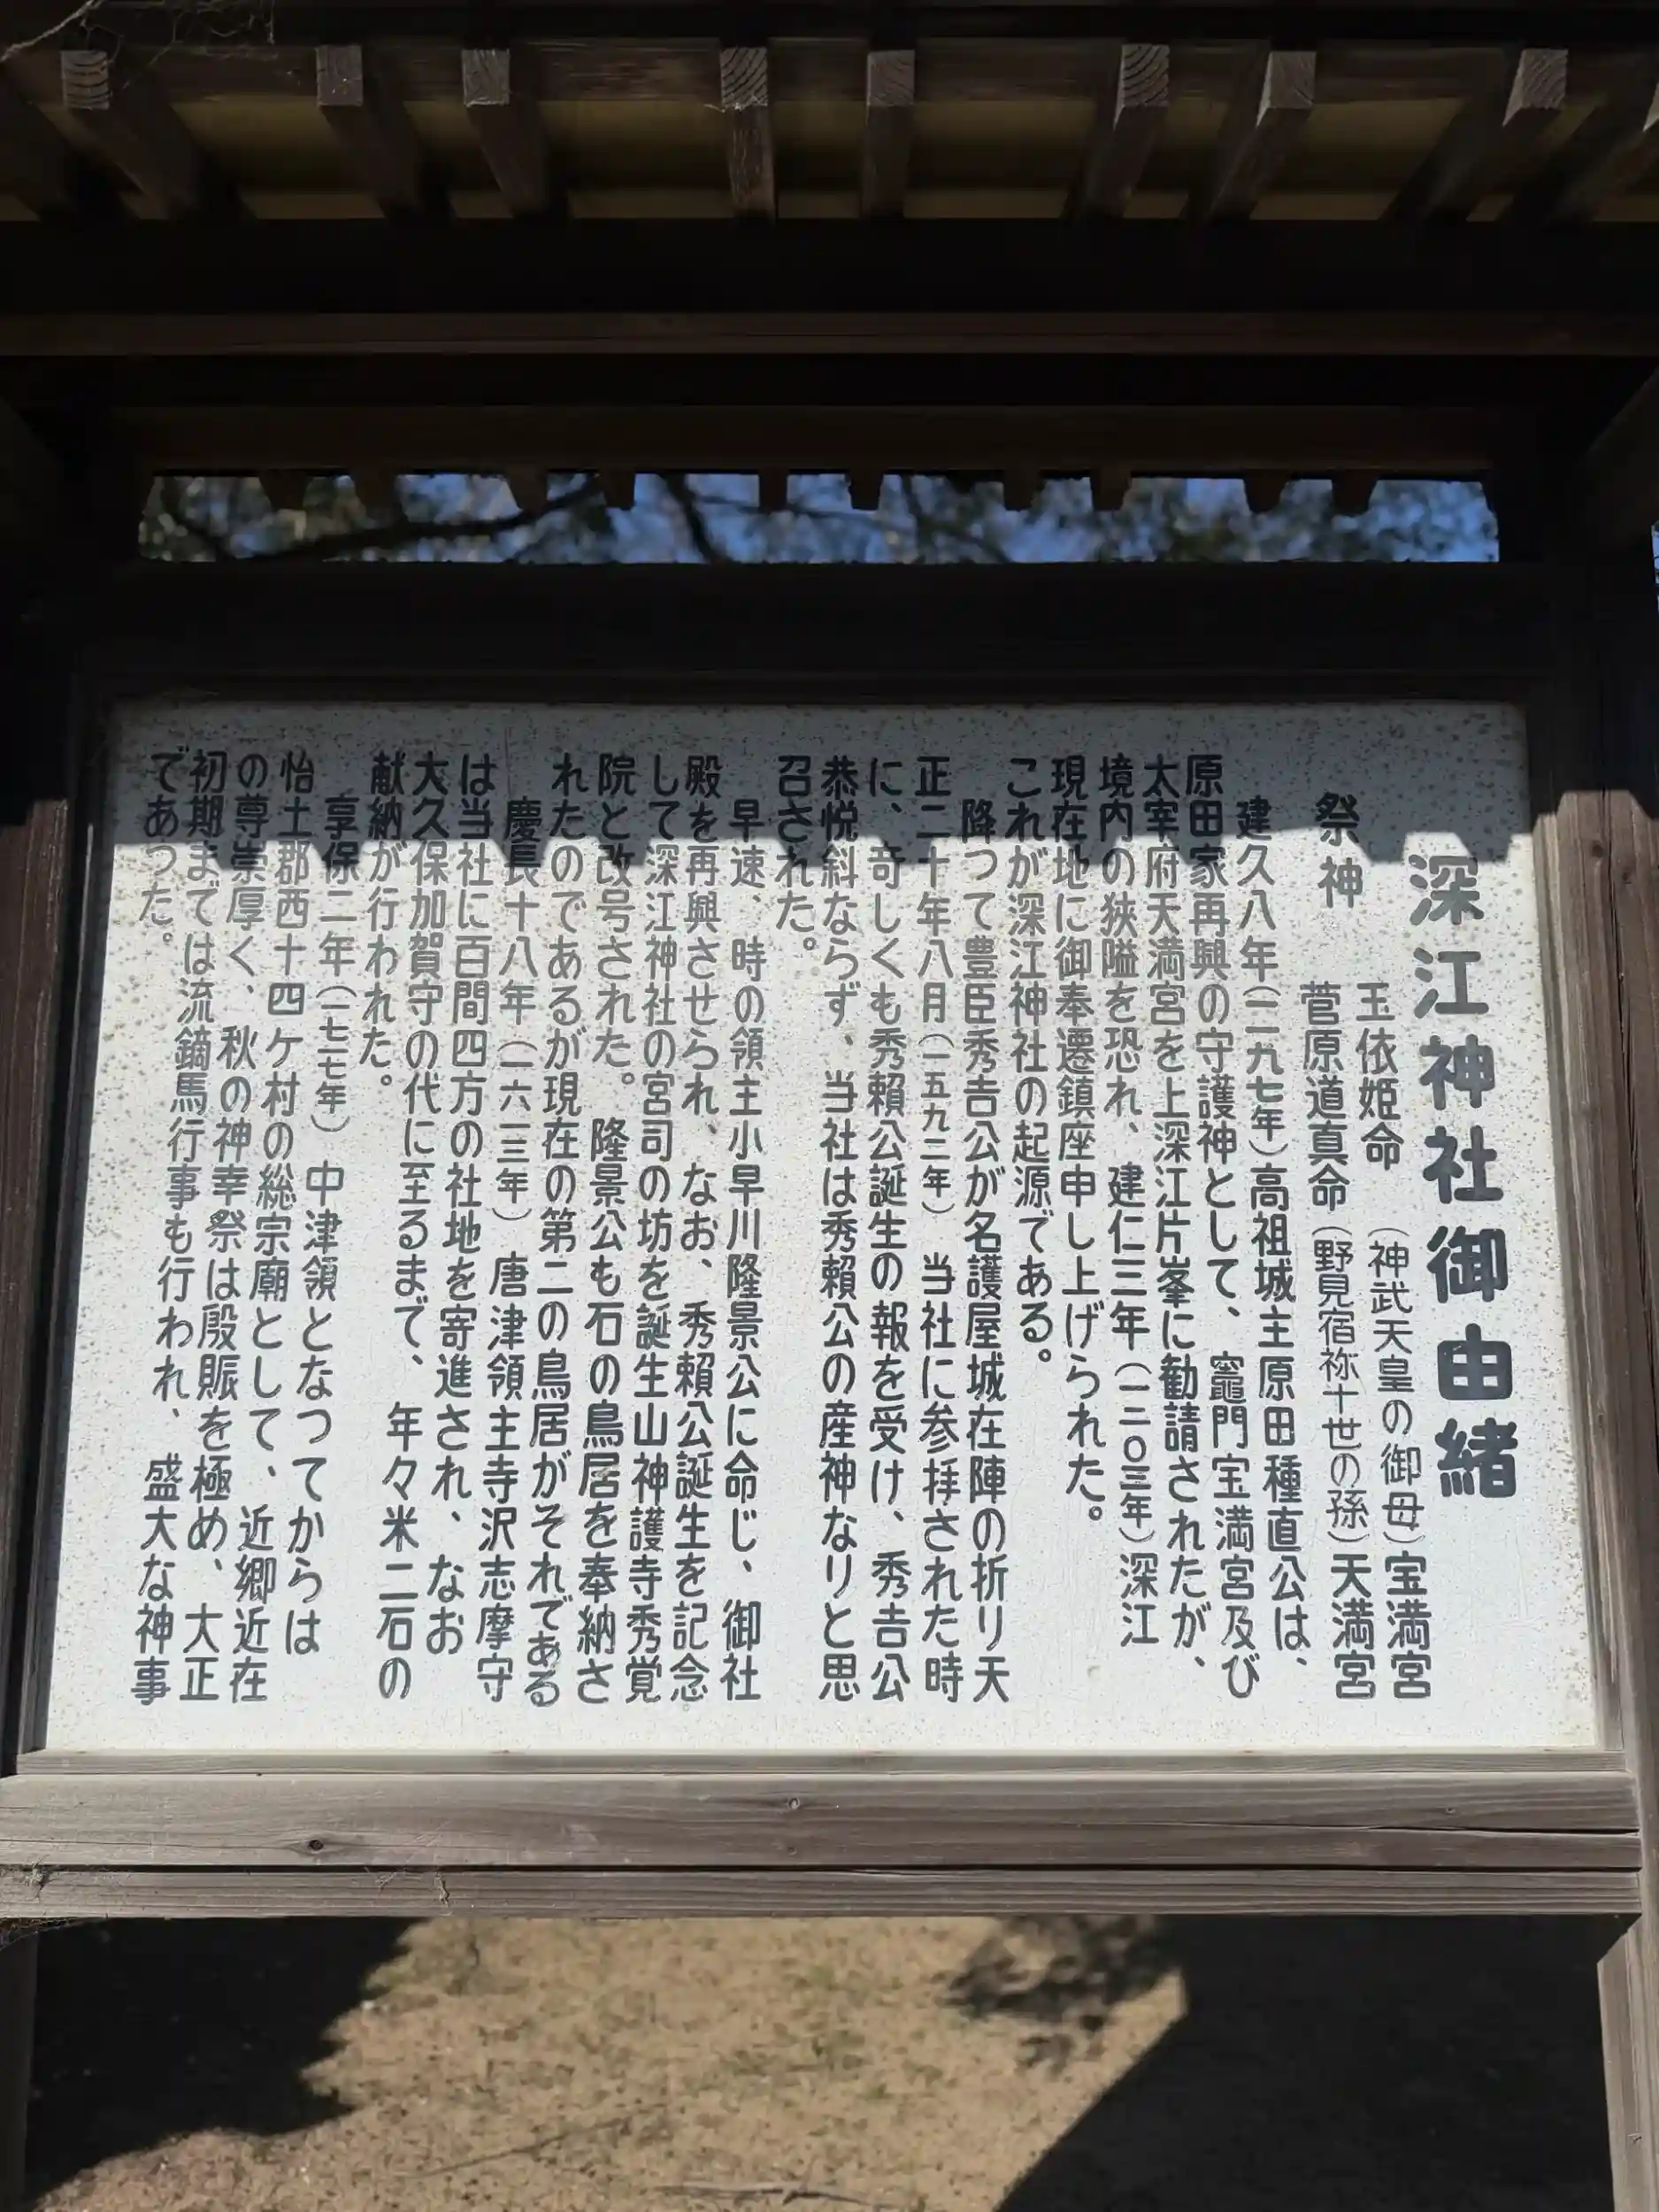 深江神社御由緒
祭神　玉依姫命（神武天皇の御母）宝満宮
菅原道真命（野見宿祢十世の孫）天満宮
建久八年（一一九七年）高祖城主原田種直公は、
原田家再興の守護神として、竈門宝満宮及び
太宰府天満宮を上深江片峯に勧請されたが、
境内の狭隘を恐れ、建仁三年（一二〇三年）深江
現在地に御奉遷鎮座申し上げられた。
これが深江神社の起源である。
降つて豊臣秀吉公が名護屋城在陣の折り天
正二十年八月（一五九二年）当社に参拝された時
に、奇しくも秀頼公誕生の報を受け、秀吉公
恭悦斜ならず、当社は秀頼公の産神なりと思
召された。
早速、時の領主小早川隆景公に命じ、御社
殿を再興させられ、なお、秀頼公誕生を記念
して深江神社の宮司の坊を誕生山神護寺秀覚
院と改号された。隆景公も石の鳥居を奉納さ
れたのであるが現在の第二の鳥居がそれである
慶長十八年（一六一三年）唐津領主寺沢志摩守
は当社に百間四方の社地を寄進され、なお
大久保加賀守の代に至るまで、年々米二石の
献納が行われた。
享保二年（一七一七年）中津領となつてからは
怡土郡西十四ケ村の総宗廟として、近郷近在
の尊崇厚く、秋の神幸祭は殷賑を極め、大正
初期までは流鏑馬行事も行われ、盛大な神事
であつた。